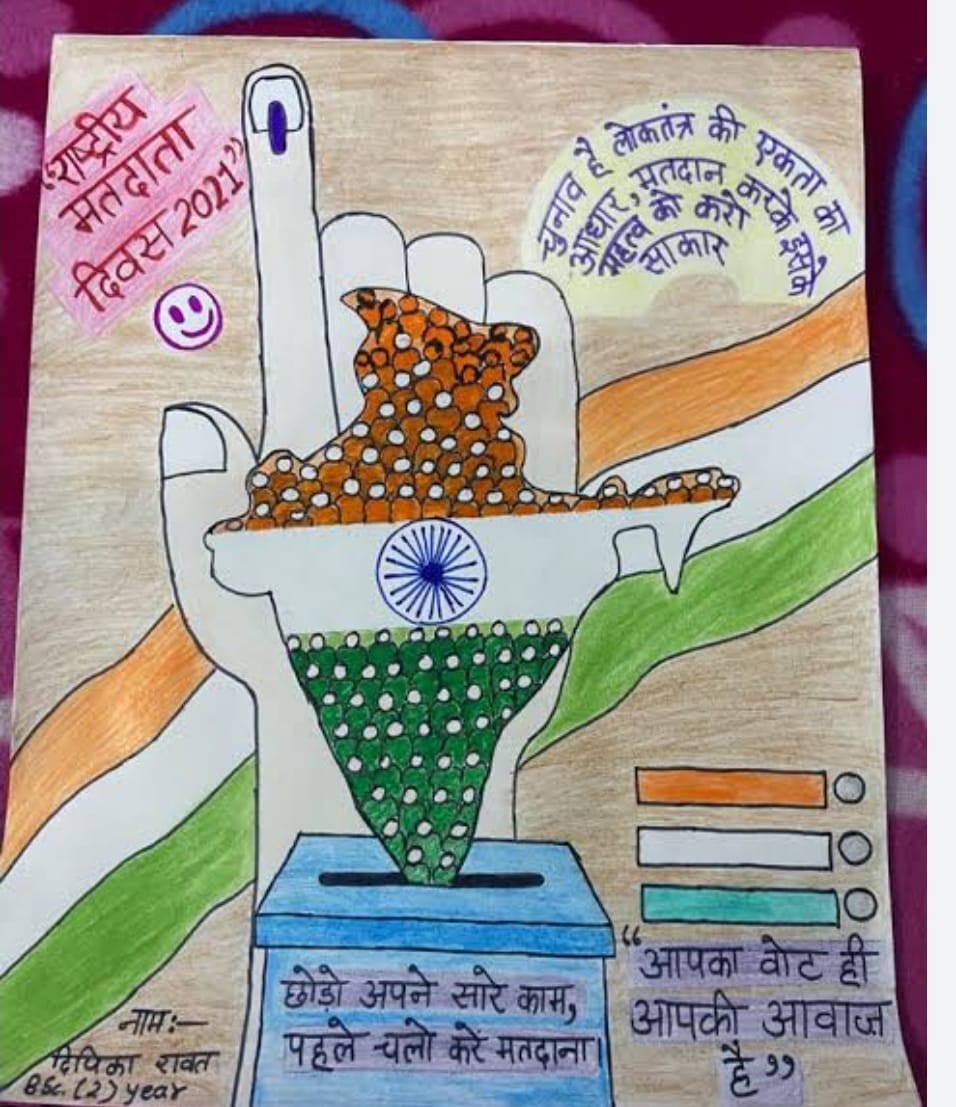 “राष्ट्रीय
मतदाता
दिवस 2021”
चुनाव है लोकतंत्र की एकता का
आधार, मतदान करके इसके
महत्व को करो
साकार
छोड़ो अपने सारे काम,
पहले चलो करें मतदान।
“आपका वोट ही
आपकी आवाज
है”
नाम:—
दिपिका रावत
B.Sc. (2) year